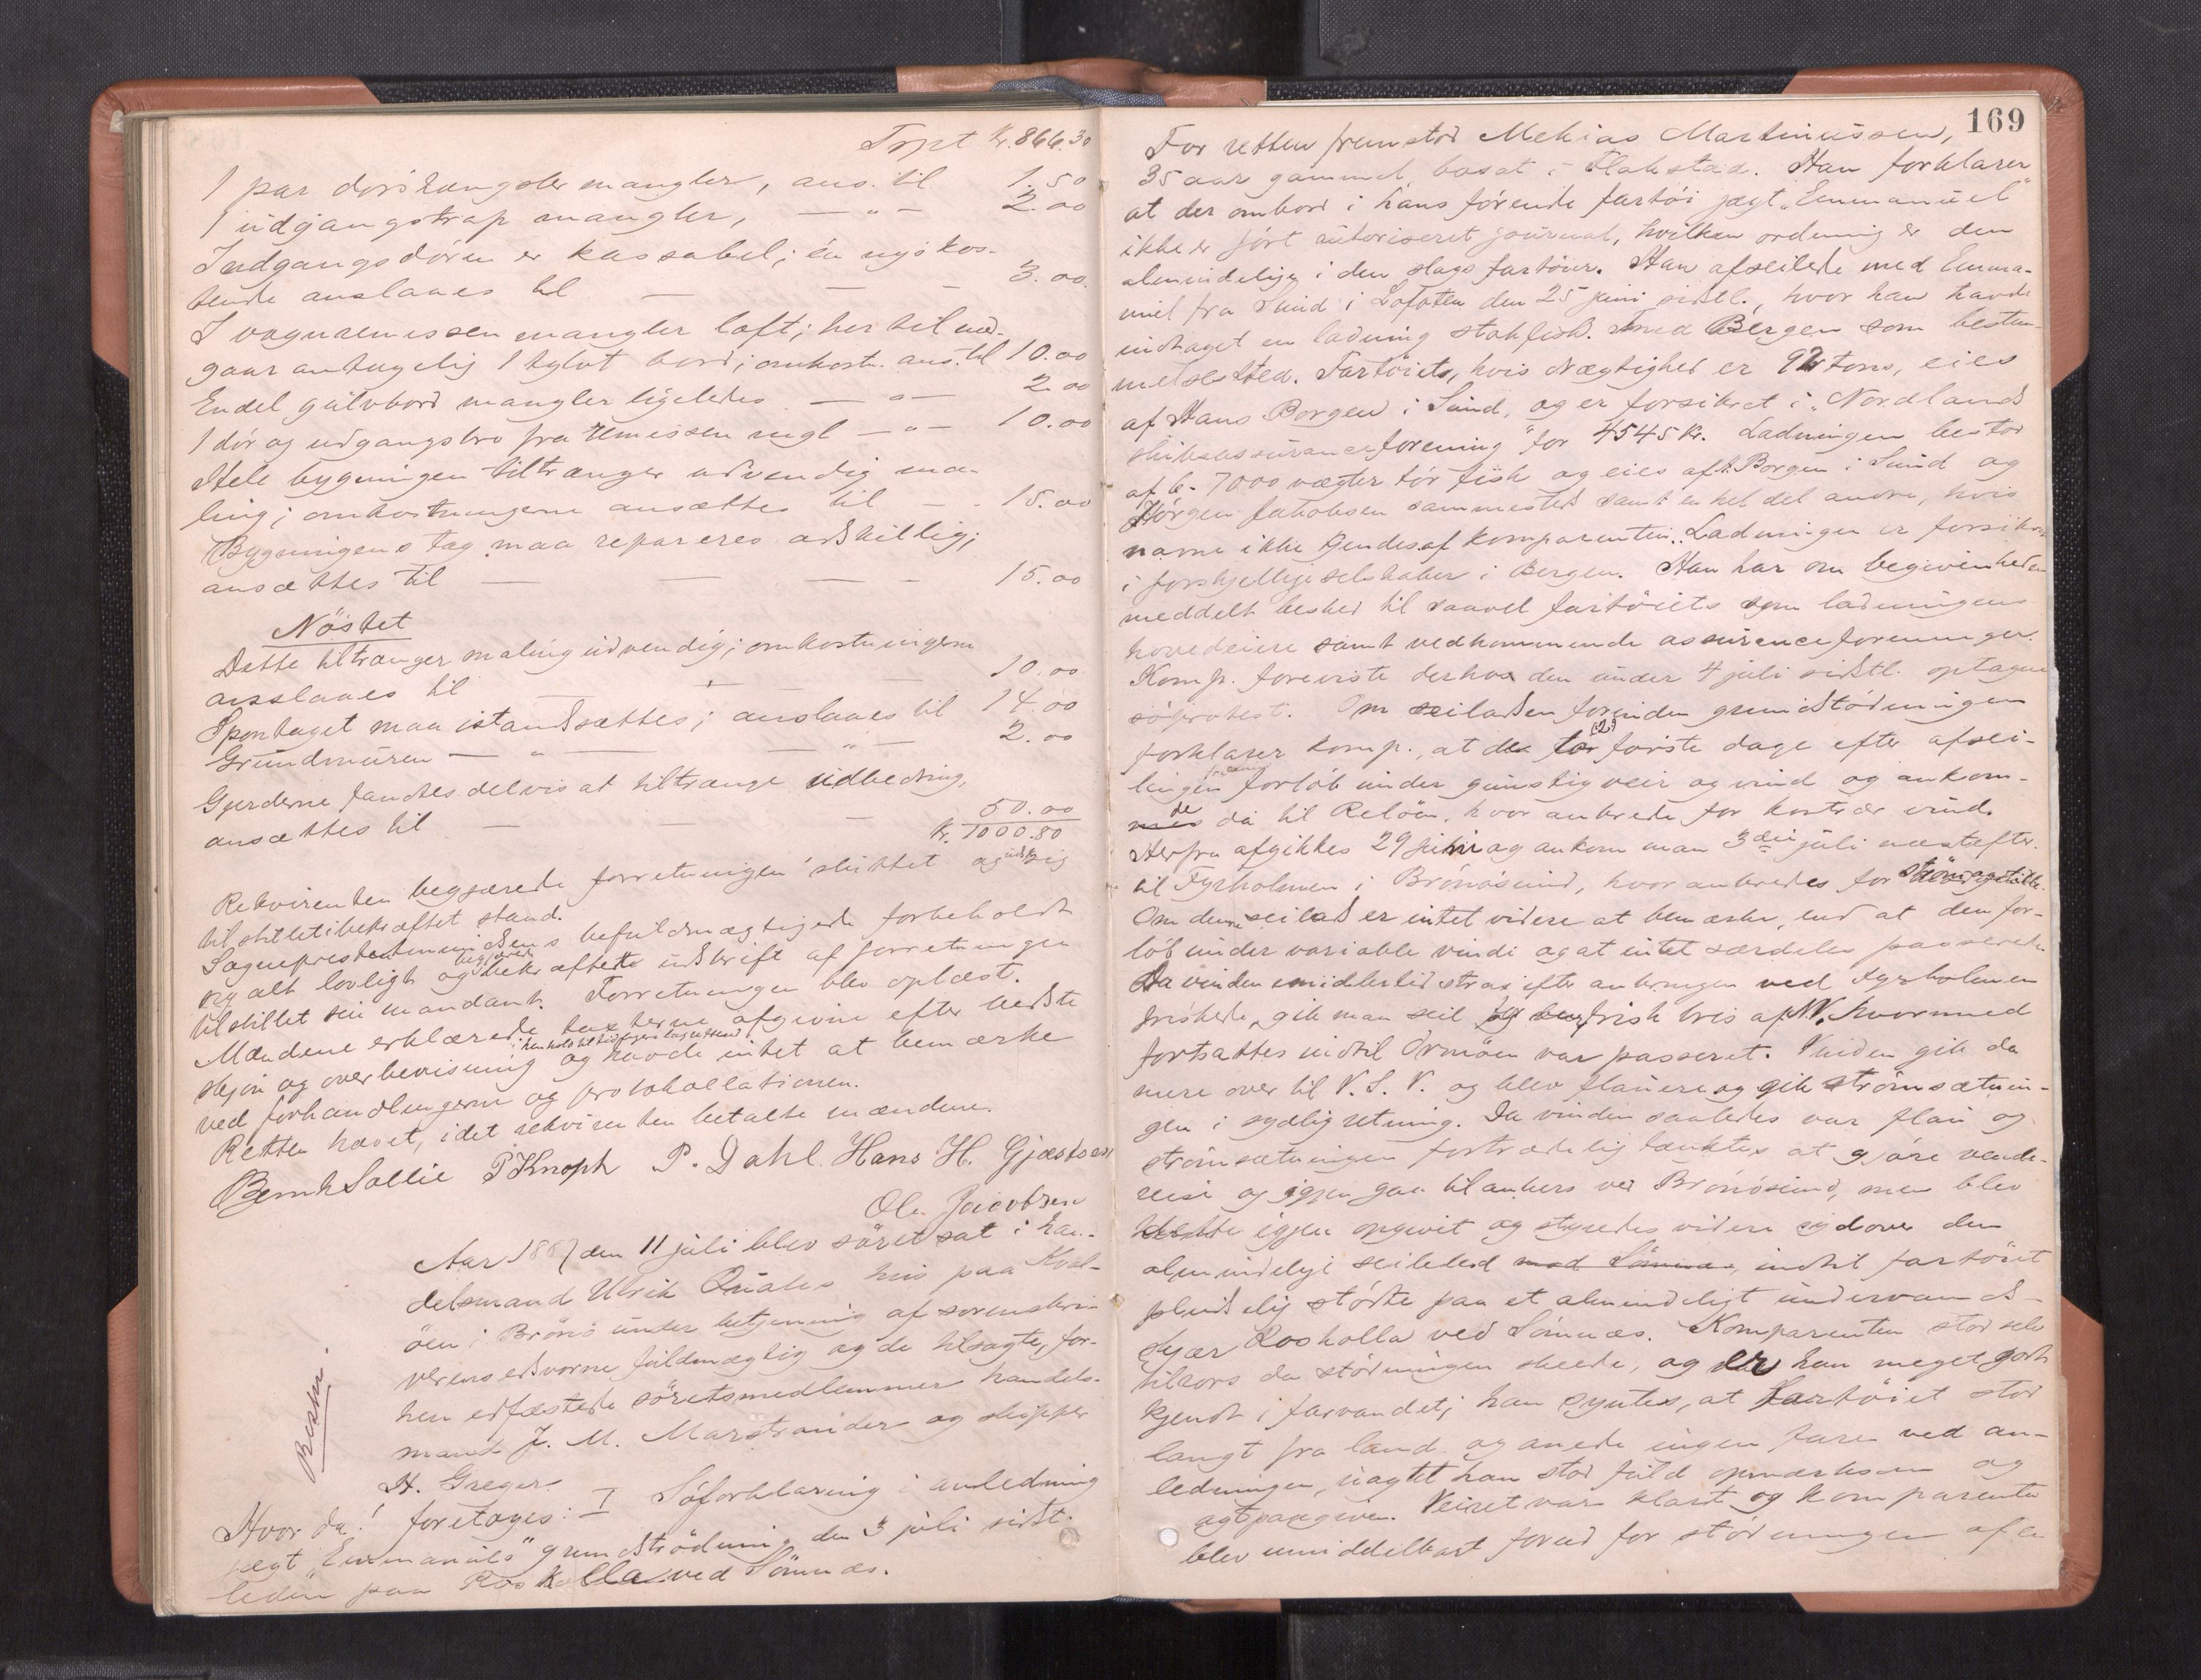 Trpt Kr. 866.30
1 par dörhængsler mangler, ans. til 1.50
1 udgangstrap mangler, — „ — 2.00
Indgangsdören er kassabel; én nys kos-
tende anslaaes til — — — 3.00.
I vognremissen mangler loft; her til med-
gaar antagelig 1 tylvt bord; omkostn. ans. til 10.00
Endel gulvbord mangler ligeledes — „ — 2.00
1 dör og udgangsbro fra remissen mgl — „ — 10.00
Hele bygningen tiltrænger udvendig ma-
ling; omkostningerne ansættes til — - 15.00
Bygningens tag maa repareres adskillig;
ansættes til — — — — 15.00
Nöstet
Dette tiltrænger maling udvendig; omkostningerne
anslaaes til — — — 10.00
Spontaget maa istandsættes; anslaaes til 14.00
Grundmuren — „ — — „ — 2.00
Gjerderne fandtes delvis at tiltrænge udbedring,
ansættes til — — — 50.00
Kr. 1000.80
Rekvirenten begjærede forretningen sluttet og udskr. sig
tilstillet i bekræftet stand.
Sognepresten befuldmægtigede forbeholdt
sig alt lovligt og begjærede bekræftede udskrift af forretningen
tilstillet sin mandant. Forretningen blev oplæst.
Mændene erklærede taxterne afgivne efter bedste
skjön og overbevisning i henhold til tidligere lagrettesed og havde intet at bemærke
ved forhandlingerne og protokollationen.
Retten hævet, idet rekvirenten betalte mændene.
Bernh Sollie P Knoph P. Dahl. Hans H. Gjæstsen
Ole Jacobsen
Aar 1887 den 11 juli blev söret sat i han-
delsmand Ulrik Quales hus paa Kval-
öen i Brönö under betjening af sorenskri-
verens edsvorne fuldmægtig og de tilsagte, for-
hen edfæstede söretsmedlemmer handels-
mand J. M. Marstrander og skipper
H. Greger.
Beskr.
Hvor da! foretoges: I Söforklaring i anledning
jægt „Emmanuels" grundstödning den 3 juli sidst-
leden paa Roskolla ved Sömnæs.
169
For retten fremstod Mekias Martinussen,
35 aar gammel, bosat i Flakstad. Han forklarer
at der ombord i hans förende fartöi jægt „Emmanuel"
ikke er fört autoriseret journal, hvilken ordning er den
almindelige i den slags fartöier. Han afseilede med Emma-
nuel fra Sund i Lofoten den 25 juni sidstl., hvor han havde
indtaget en ladning stokfisk med Bergen som bestem-
melsessted. Fartöiets, hvis drægtighed er 92 tons, eies
af Hans Borgen i Sund, og er forsikret i „Nordlands
skibsassuranceforening" for 4545 Kr. Ladningen bestod
af c. 7000 vægter tör fisk og eies af H. Borgen i Sund og
Jörgen Jakobsen sammesteds samt en hel del andre, hvis
navne ikke kjendes af komparenten. Ladningen er forsikret
i forskjellige selskaber i Bergen. Han har om begivenheden
meddelt besked til saavel fartöiets som ladningens
hovedeiere samt vedkommende assuranceforeninger.
Komp. foreviste derhos den under 4 juli sidstl. optagne
söprotest. Om seiladsen forinden grundstödningen
forklarer komp., at de to (2) förste dage efter afsei-
lingen forlöb under gunstig veir og vind og ankom-
de da til Relöen, hvor ankrede for kontrær vind.
Herfra afgikkes 29 juni og ankom man 3die juli næstefter.
til Tyrholmen i Brönösund, hvor ankredes for ström og stille.
Om denne seilads er intet videre at bemærke, end at den for-
löb under variable vinde og at intet særdeles passerede.
Da vinden imidlertid strax efter ankringen ved Tyrholmen
friskede, gik man seil frisk bris af N.V. hvormed
fortsattes indtil Ormöen var passeret. Vinden gik da
mere over til V.S.V. og blev flauere og gik strömsætnin-
gen i sydlig retning. Da vinden saaledes var flau og
strömsætningen fortrædelig tænktes at gjöre vende-
reise og igjen gaa til ankers ved Brönösund, men blev
dette igjen opgivet og styredes videre sydover den
almindelige seilled med Sömnæs, indtil fartöiet
pludselig stödte paa et almindeligt undervands-
skjær Roskolla ved Sömnæs. Komparenten stod selv
tilrors da stödningen skeede, og er han meget godt
kjendt i farvandet; han syntes, at fartöiet stod
langt fra land og anede ingen fare ved an-
ledningen, uagtet han stod fuld opmærksom og
agtpaagiven. Veiret var klart og komparenten
blev umiddelbart forud for stödningen af en